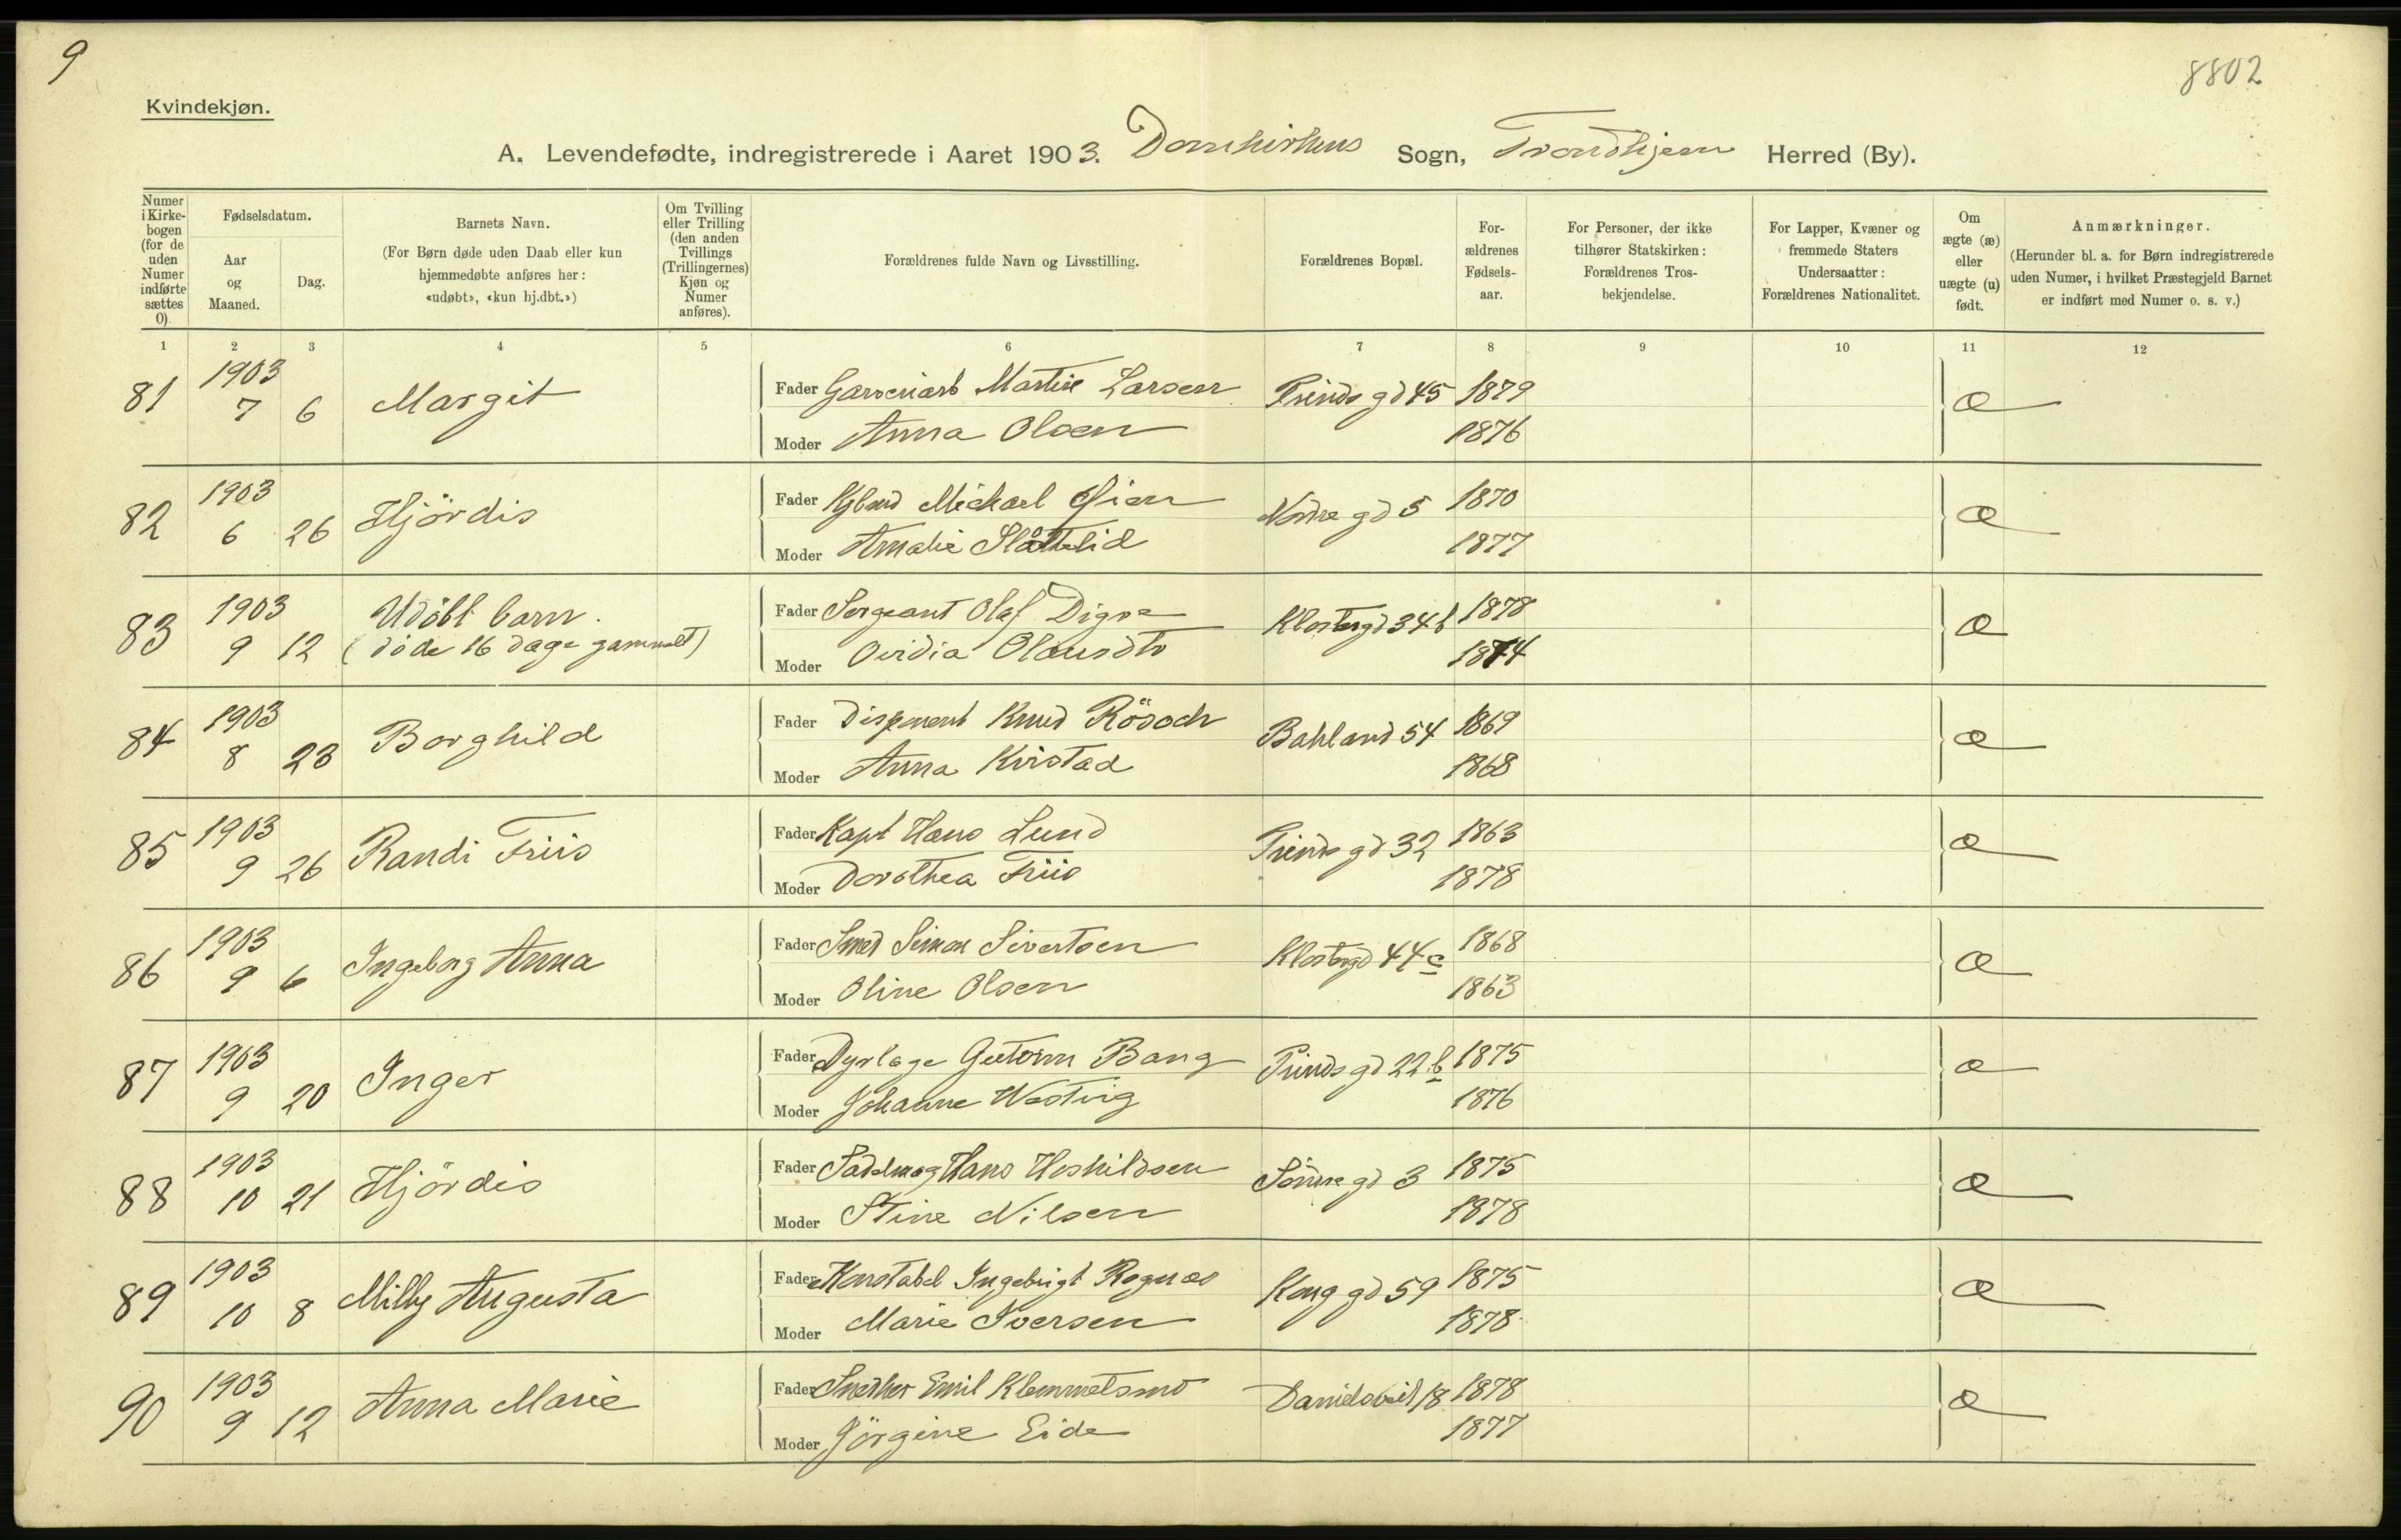 9
8802
Kvindekjøn.
A. Levendefødte, indregistrerede i Aaret 1903. Domkirkens Sogn, Trondhjem Herred (By).
Numer i Kirkebogen (for de uden Numer indførte sættes 0).
Fødselsdatum.
Aar og Maaned.
Dag.
Barnets Navn.
(For Børn døde uden Daab eller kun hjemmedøbte anføres her: «udøbt», «kun hj.dbt.»)
Om Tvilling eller Trilling (den anden Tvillings (Trillingernes) Kjøn og Numer anføres).
Forældrenes fulde Navn og Livsstilling.
Forældrenes Bopæl.
Forældrenes Fødselsaar.
For Personer, der ikke tilhører Statskirken: Forældrenes Trosbekjendelse.
For Lapper, Kvæner og fremmede Staters Undersaatter: Forældrenes Nationalitet.
Om ægte (æ) eller uægte (u) født.
Anmærkninger.
(Herunder bl. a. for Børn indregistrerede uden Numer, i hvilket Præstegjeld Barnet er indført med Numer o. s. v.)
1 2 3 4 5 6 7 8 9 10 11 12
81 1903 7 6 Margit Fader Garveriarb Martin Larsen Prinds gd 45 1879 æ
Moder Anna Olsen 1876
82 1903 6 26 Hjördis Fader Kjbmd Michael Øien Nordre gd 5 1870 æ
Moder Amalie Slåttelid 1877
83 1903 9 12 Udöbt barn. (döde 16 dage gammelt) Fader Sergeant Olaf Digre Klostergd 34b 1878 æ
Moder Ovidia Olausdtr 1874
84 1903 8 23 Borghild Fader Disponent Knud Rösoch Bakland 54 1869 æ
Moder Anna Kvistad 1868
85 1903 9 26 Randi Friis Fader Kapt Hans Lund Prinds gd 32 1863 æ
Moder Dorothea Friis 1878
86 1903 9 6 Ingeborg Anna Fader Smed Simon Sivertsen Klostergd 44c 1868 æ
Moder Oline Olsen 1863
87 1903 9 20 Inger Fader Dyrlæge Guttorm Bang Prinds gd 22b 1875 æ
Moder Johanne Wæsting 1876
88 1903 10 21 Hjördis Fader Sadelmag Hans Hoskildsen Söndre gd 3 1875 æ
Moder Stine Nilsen 1878
89 1903 10 8 Milly Augusta Fader Konstabel Ingebrigt Rognæs Kong gd 59 1875 æ
Moder Marie Iversen 1878
90 1903 9 12 Anna Marie Fader Snedker Emil Klemmetsmo Danielsveit 18 1878 æ
Moder Jörgine Eide 1877